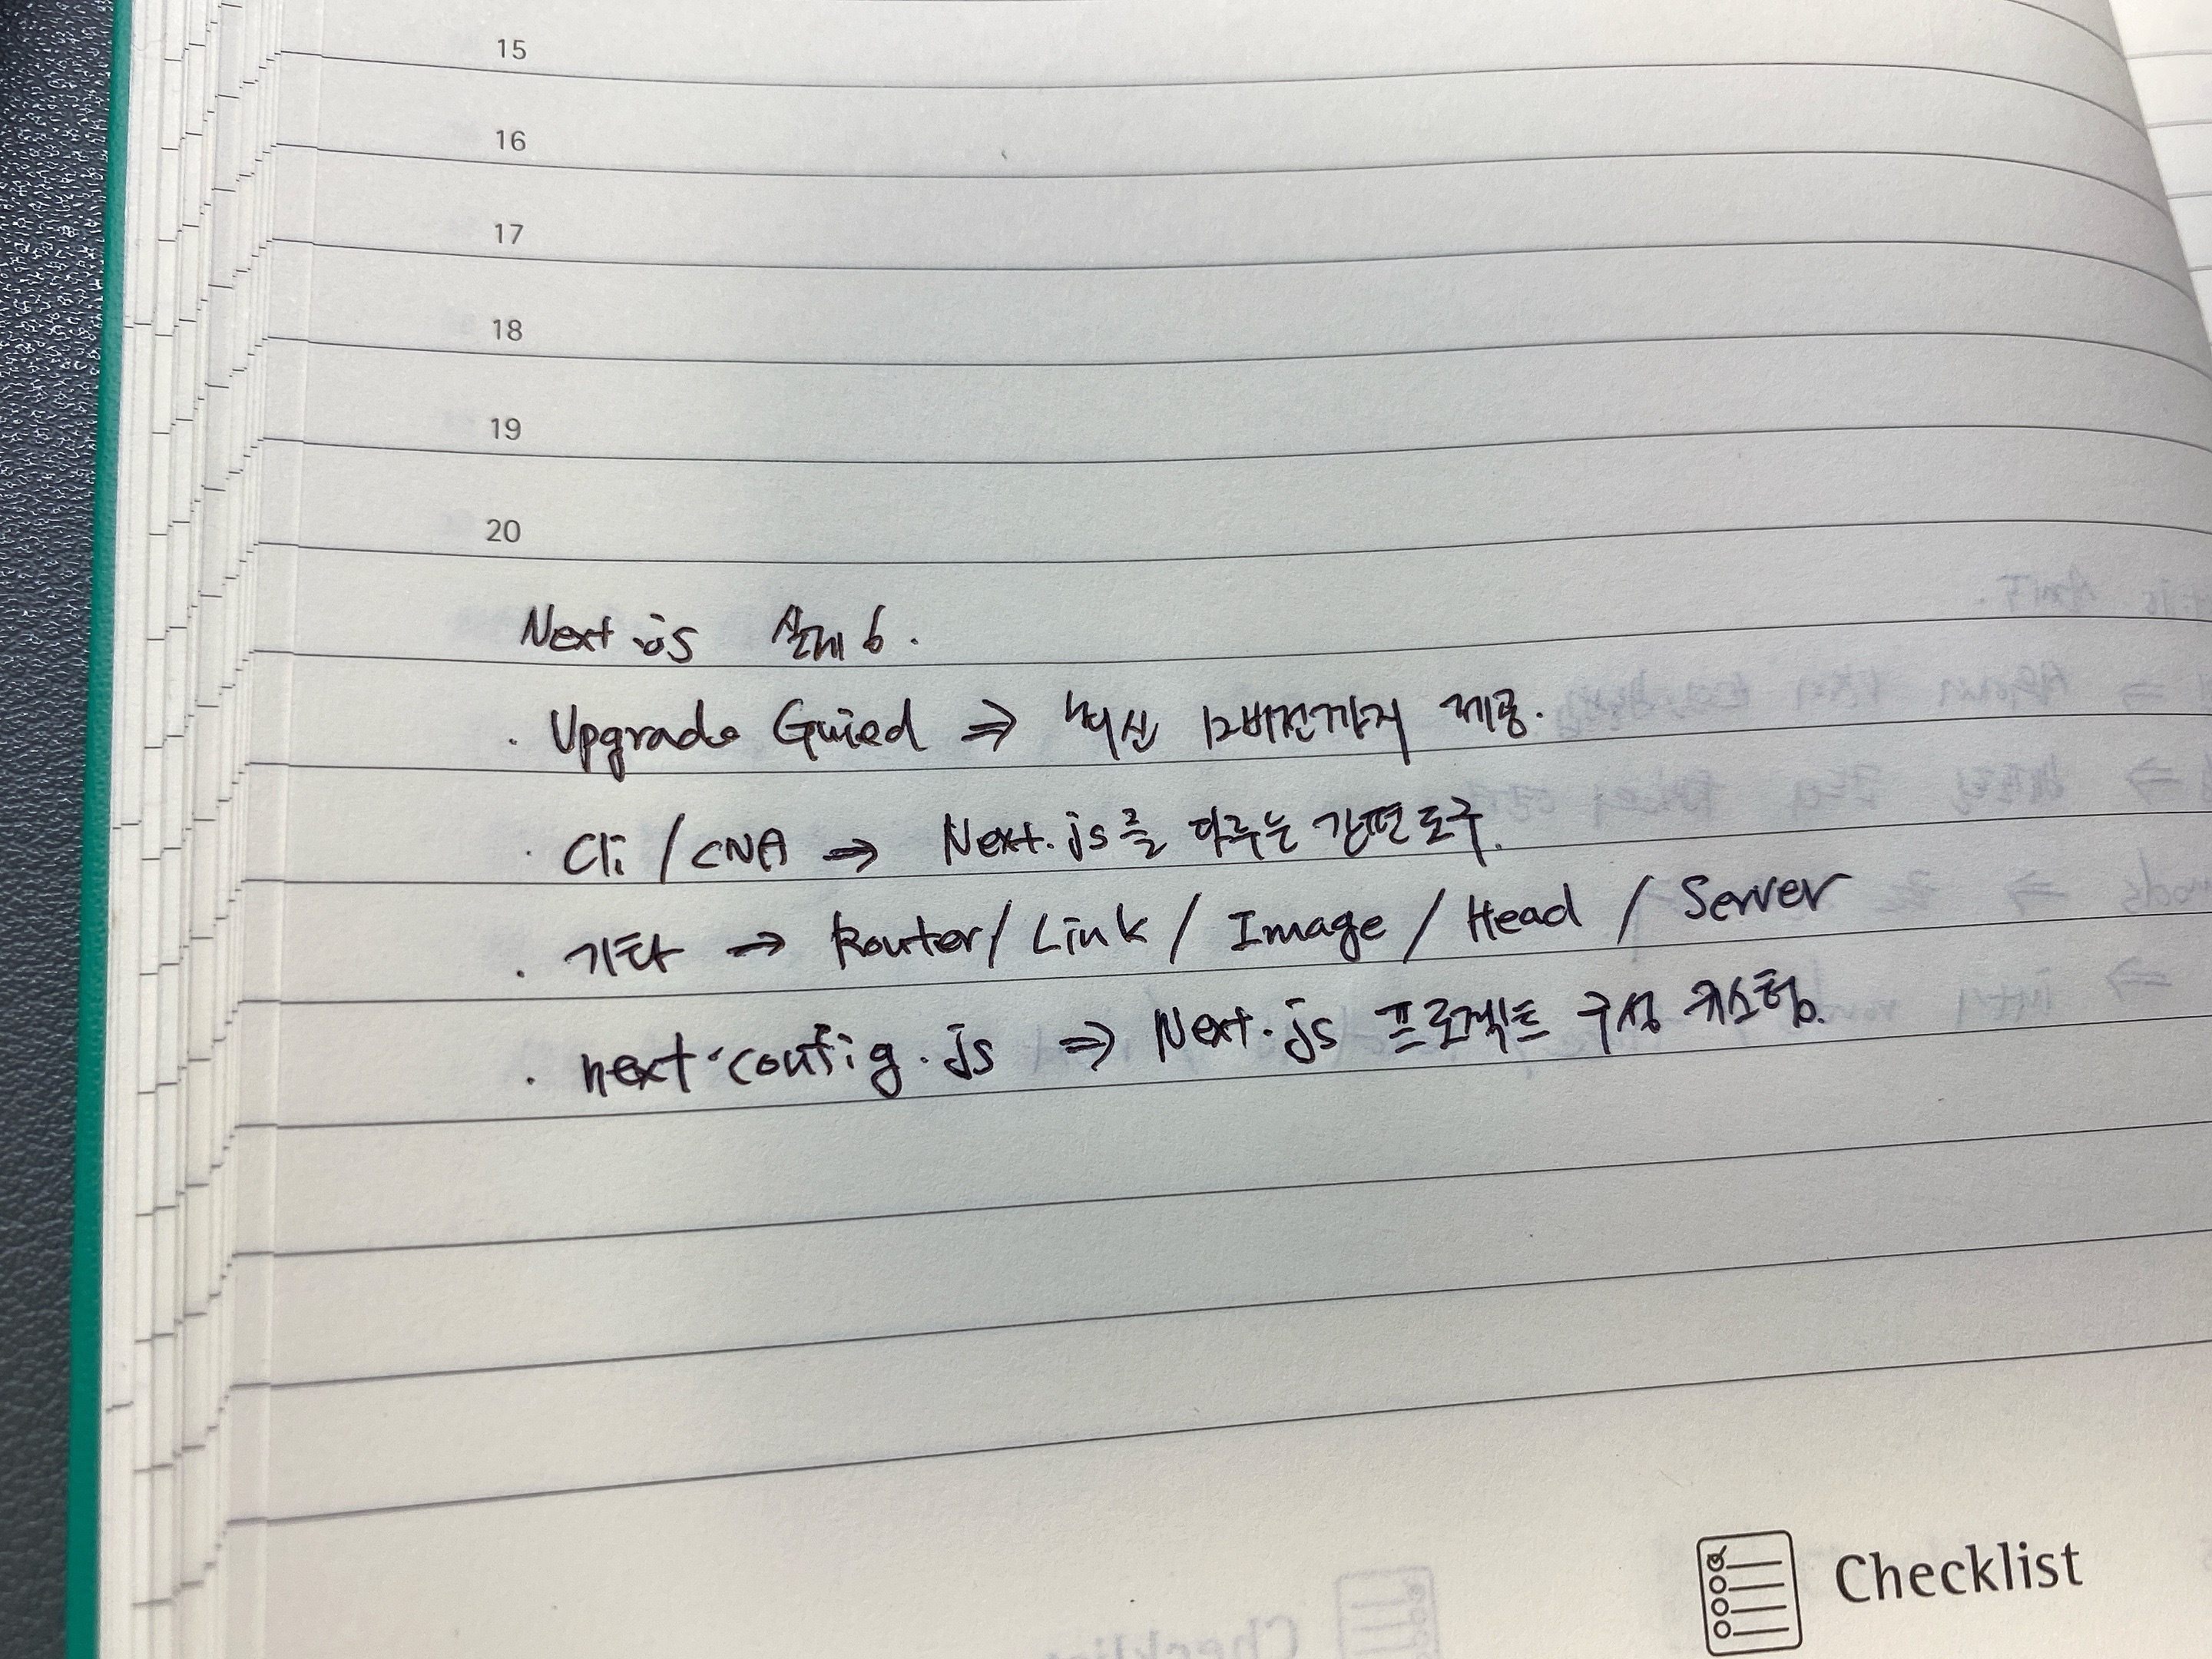 15
16
17
18
19
20
Next.js 실제 6.
· Upgrade Guied ⇒ 최신 12버전까지 제공.
· Cli / CNA ⇒ Next.js를 다루는 간편도구.
· 기타 → Router / Link / Image / Head / Server
· next.config.js ⇒ Next.js 프로젝트 구성 커스텀.
Checklist